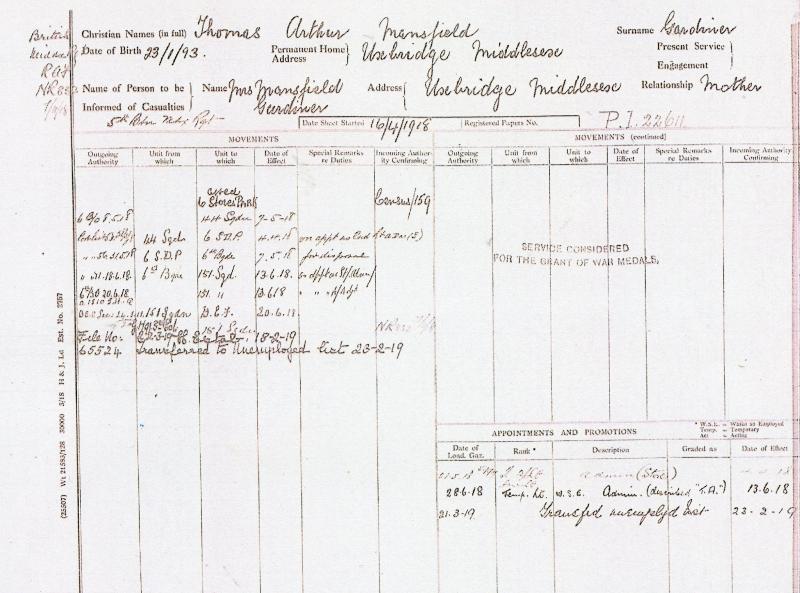 British
RAF
Christian Names (in full) Thomas Arthur Mansfield Surname Gardiner
Date of Birth 23/1/93. Permanent Home Address } Uxbridge Middlesex Present Service } Engagement
Name of Person to be Informed of Casualties } Name Mrs Mansfield Gardiner Address { Uxbridge Middlesex Relationship Mother
5th
Date Sheet Started 16/4/1918 Registered Papers No. P.I. 22611
MOVEMENTS
Outgoing Authority Unit from which Unit to which Date of Effect Special Remarks re Duties Incoming Authority Confirming
6 Stores Park Census/159
8.5.18 44 Sqdn 7-5-18
44 Sqdn 6 S.D.P. 4.4.18 on appt as
6 S.D.P. 6th Bgde 7.5.18 for disposal
18.6.18 6th Bgde 151 Sqd. 13.6.18
20.6.18 151. " 13.6.18 " "
151 Sqdn B.E.F. 20.6.18
151 Sqdn
File No: 18-2-19
65524 transferred to Unemployed list 23-2-19
MOVEMENTS (continued)
Outgoing Authority Unit from which Unit to which Date of Effect Special Remarks re Duties Incoming Authority Confirming
SERVICE CONSIDERED
FOR THE GRANT OF WAR MEDALS.
* W.S.E. = Whilst so Employed
Temp. = Temporary
Act = Acting
APPOINTMENTS AND PROMOTIONS
Date of Lond. Gaz. Rank * Description Graded as Date of Effect
Admin (Stores)
28-6-18 Temp. Lt. W.S.E. Admin. (described "T.A.") 13.6.18
21-3-19 Transfd unemployd list 23-2-19
(25507) Wt 21593/128 30000 5/18 H & J, Ld Est. No. 2767